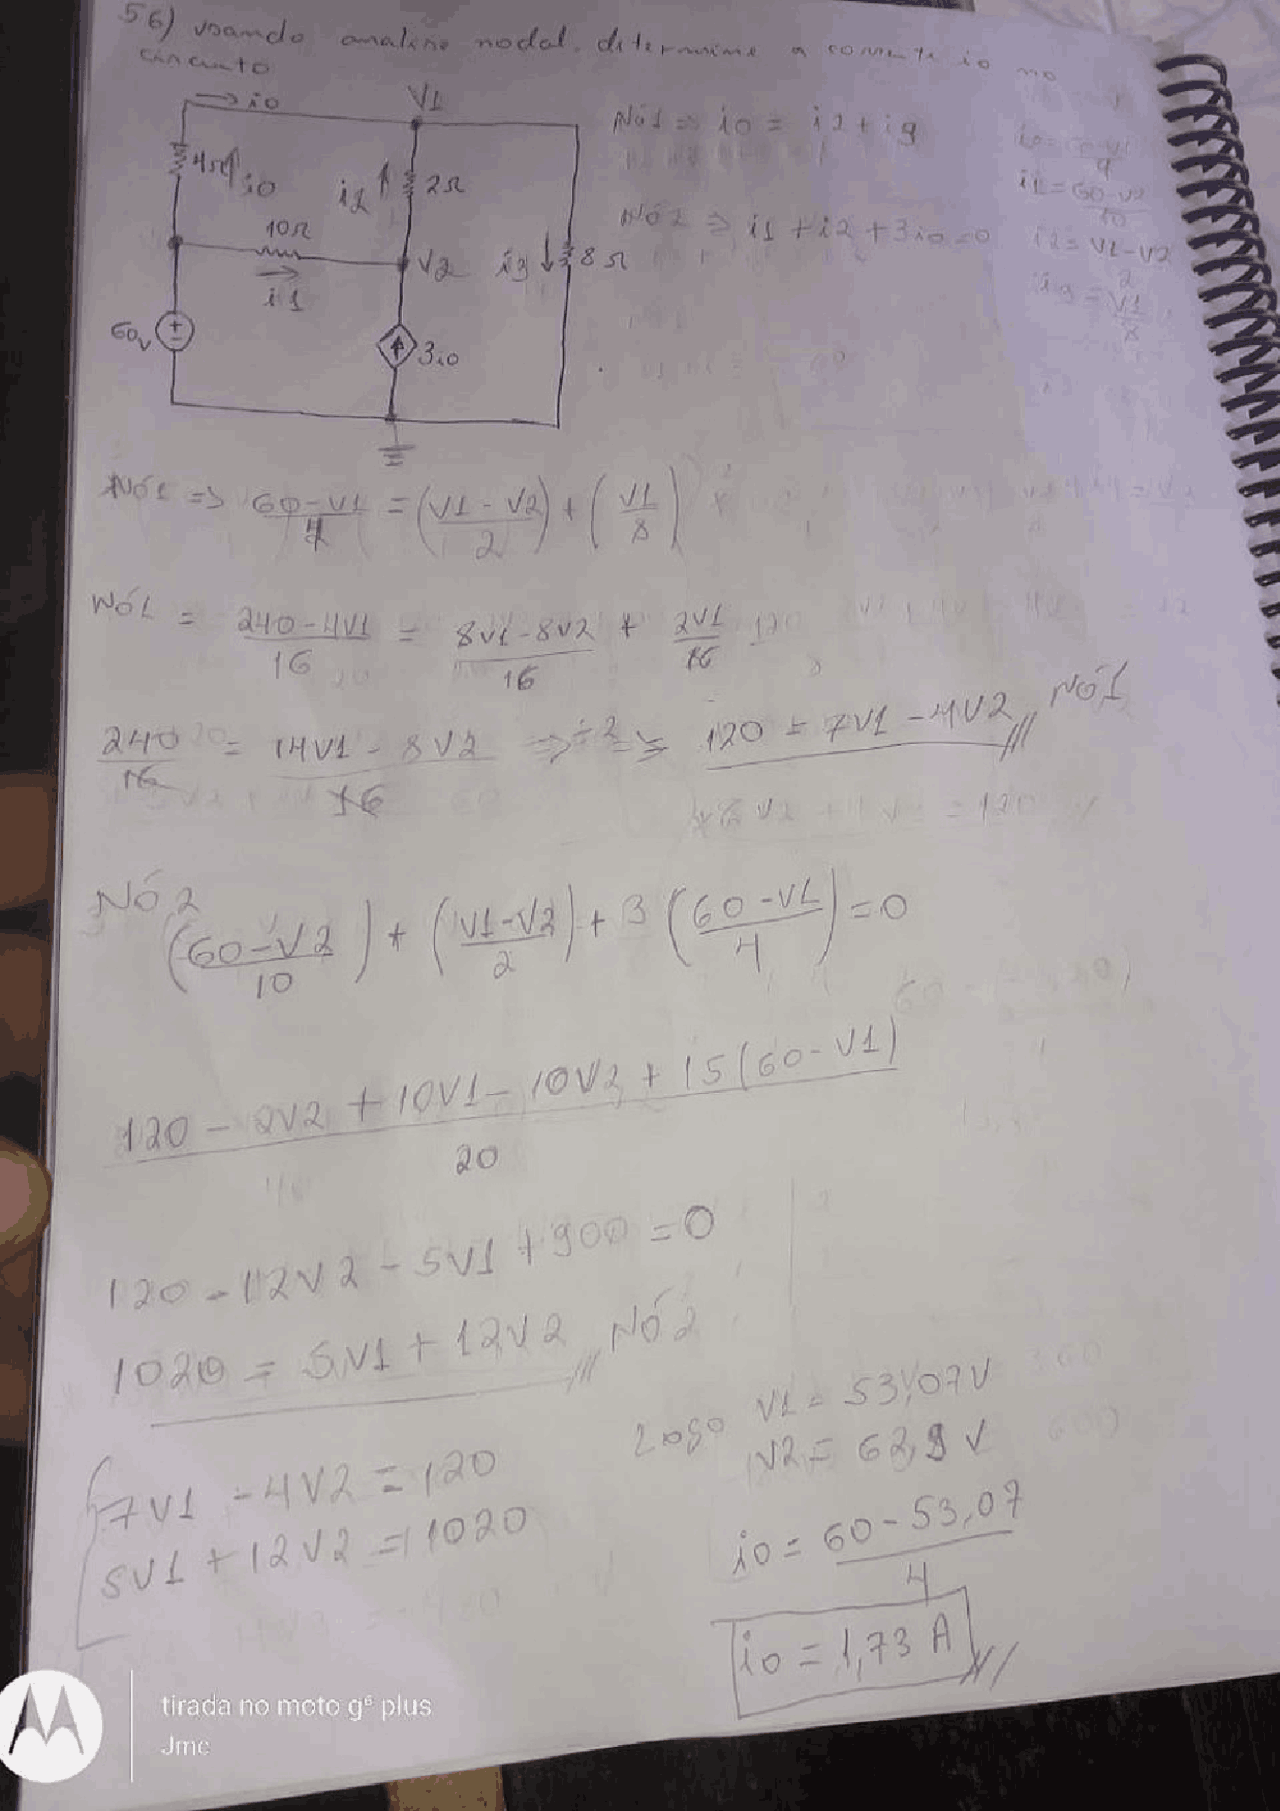 56) usando analise nodal, determine a corrente io no
circuito
→ io
V1
4Ω
io
i2
2Ω
10Ω
i1
V2
i3
8Ω
60v
3io
Nó1 => io = i2 + i3
Nó 2 => i1 + i2 + 3io = 0
io = 60-V1
4
i1 = 60-V2
10
i2 = V1-V2
2
i3 = V1
8
Nó1 => 60-V1 / 4 = (V1 - V2 / 2) + (V1 / 8)
Nó1 = 240-4V1 / 16 = 8V1-8V2 / 16 + 2V1 / 16
240 / 16 = 14V1 - 8V2 / 16 => ÷2 => 120 = 7V1 - 4V2 Nó1
Nó 2
(60-V2 / 10) + (V1-V2 / 2) + 3 (60-V1 / 4) = 0
120 - 2V2 + 10V1 - 10V2 + 15(60-V1)
20
120 - 12V2 - 5V1 + 900 = 0
1020 = 5V1 + 12V2 Nó 2
7V1 - 4V2 = 120
5V1 + 12V2 = 1020
Logo V1 = 53,07V
V2 = 62,9 V
io = 60-53,07
4
io = 1,73 A
tirada no moto g⁶ plus
Jme